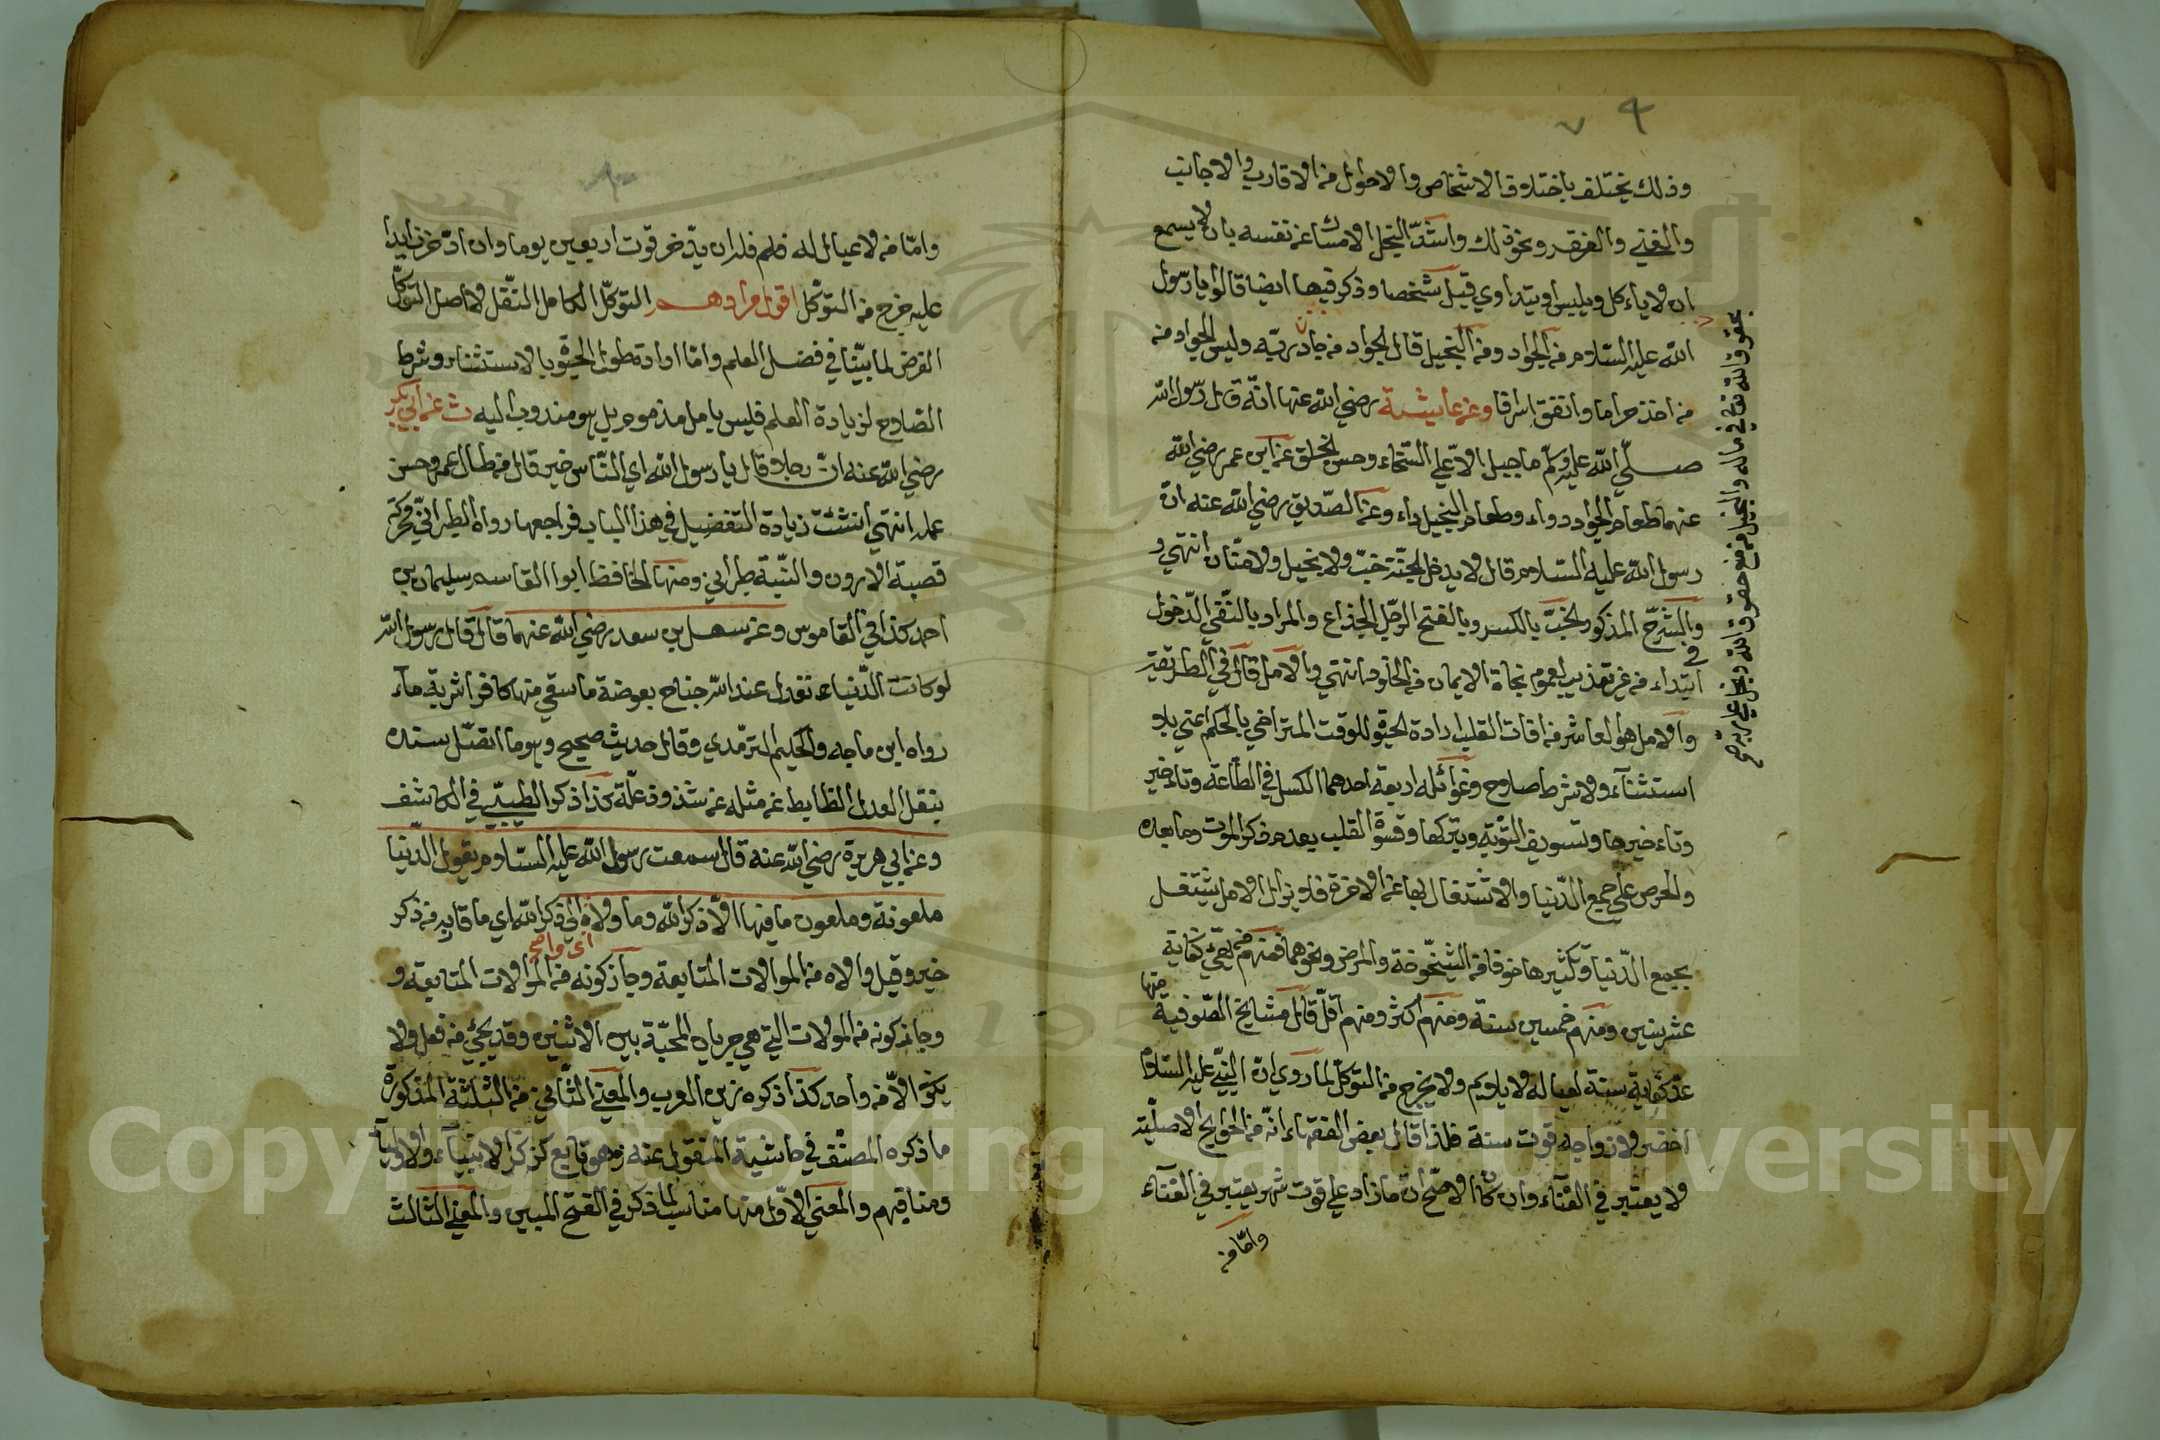 وذلك يختلف باختلاف الاشخاص والاحوال من الاقارب والاجانب
والغني والفقر ونحو ذلك واشدّ البخل الامساك عن نفسه بان لا يسمع
ان لا ياءكل ويلبس او يتداوي قيل شخصا وذكر فيها ايضا قالوا يا رسول
الله عليه السلام من الجواد ومن البخيل قال الجواد من جاد وليس الجواد من
من اخذ حراما وانفق اسرافا وعن عايشة رضي الله عنها انه قال رسول الله
صلّي الله عليه وسلّم ما جبل الا علي السّخاء وحسن الخلق عن ابن عمر رضي الله
عنهما طعام الجواد دواء وطعام البخيل داء وعن الصّديق رضي الله عنه ان
رسول الله عليه السلام قال لا يدخل الجنّة خبّ ولا بخيل ولا منّان انتهي و
والشرح المذكور الخبّ بالكسر وبالفتح الرجل الخداع والمراد بالنّفي الدّخول
ابتداء من غير تعذيب لعموم نجاة الايمان في الخلود انتهي والامل قال في الطريقة
والامل هو العاشر من افات القلب ارادة الحيوة للوقت المتراخي بالحكم اعني بلا
استثناء ولا شرط صلاح وغوائله اربعة احدهما الكسل في الطّاعة وتاءخير
وتاءخيرها وتسويف التّوبة وبتركها وقسوة القلب بعدم ذكر الموت وما بعده
والحرص علي جميع الدّنيا والاشتغال بها عن الاخرة فلا يزال الامل يشتغل
بجميع الدّنيا وتكثيرها خوفا من الشيخوخة والمرض ونحوهما فمنهم من يهيّ كفاية
عشر سنين ومنهم خمسين سنة ومنهم اكثر ومنهم اقلّ قال مشايخ الصّوفية
منها
عدّ كفاية سنة لعياله لا يلام ولا يخرج من التوكّل لما روي انّ النبيّ عليه السلام
ادّخر لازواجه قوت سنة فلذا قال بعض الفقهاء انّه من الحوايج الاصليّة
ولا يعتبر في الغناء وان كان الاصحّ ان ما زاد علي قوت شهر يعتبر في الغناء
وامّا من
حقوق الله تعالي في ماله والبخيل من منع حقوق الله وبخل علي ربّه صح
وامّا من لا عيال له فلم فله ان يدّخر قوت اربعين يوما وان ادّخر زايدا
عليه خرج من التوكّل اقول مرادهم التوكّل الكامل النّفل لا اصل التوكّل
الفرض لما بيّنا في فضل العلم وامّا ارادة طول الحيوة بالاستثناء وشرط
الصلاح لزيادة العلم فليس بامل مذموم بل هو مندوب اليه ث عن ابي بكر
رضي الله عنه انّ رجلا قال يا رسول الله اي النّاس خير قال من طال عمره وحسن
عمله انتهي ان شئت زيادة التفضيل في هذا الباب فراجعها رواه الطبرانيّ محرّكة
قصبة الاردن والنّسبة طبراني ومنها الحافظ ابو القاسم سليمان بن
احمد كذا في القاموس وعن سهل بن سعد رضي الله عنهما قال قال رسول الله
لو كانت الدّنياء تعدل عند الله جناح بعوضة ما سقي منها كافرا شربة ماء
رواه ابن ماجه والحكيم الترمدي وقال حديث صحيح وهو ما اتصّل سنده
بنقل العدل الظابط عن مثله عن شذوذ علّة كذا ذكر الطيبيّ في الكاشف
وعن ابي هريرة رضي الله عنه قال سمعت رسول الله عليه السلام يقول الدّنيا
ملعونة وملعون ما فيها الّا ذكر الله وما والاه اي ذكر الله اي ما قابله من ذكر
اي واحب
خير وقيل والاه من الموالات المتابعة وجاز كونه من الموالات المتابعة و
وجاز كونه من المولات التي هي جريان المحبّة بين الاثنين وقد يجئ من فعل ولا
يكون الّا من واحد كذا ذكره زين العرب والمعني الثّاني من الثلثة المذكورة
ما ذكره المصنّف في حاشية المنقول عنه وهو تابع كذكر الانبياء والاولياء
ومناقبهم والمعني الاوّل منها مناسب لما ذكر في الفتح المبين والمعني الثالث
Copyright © King Saud University